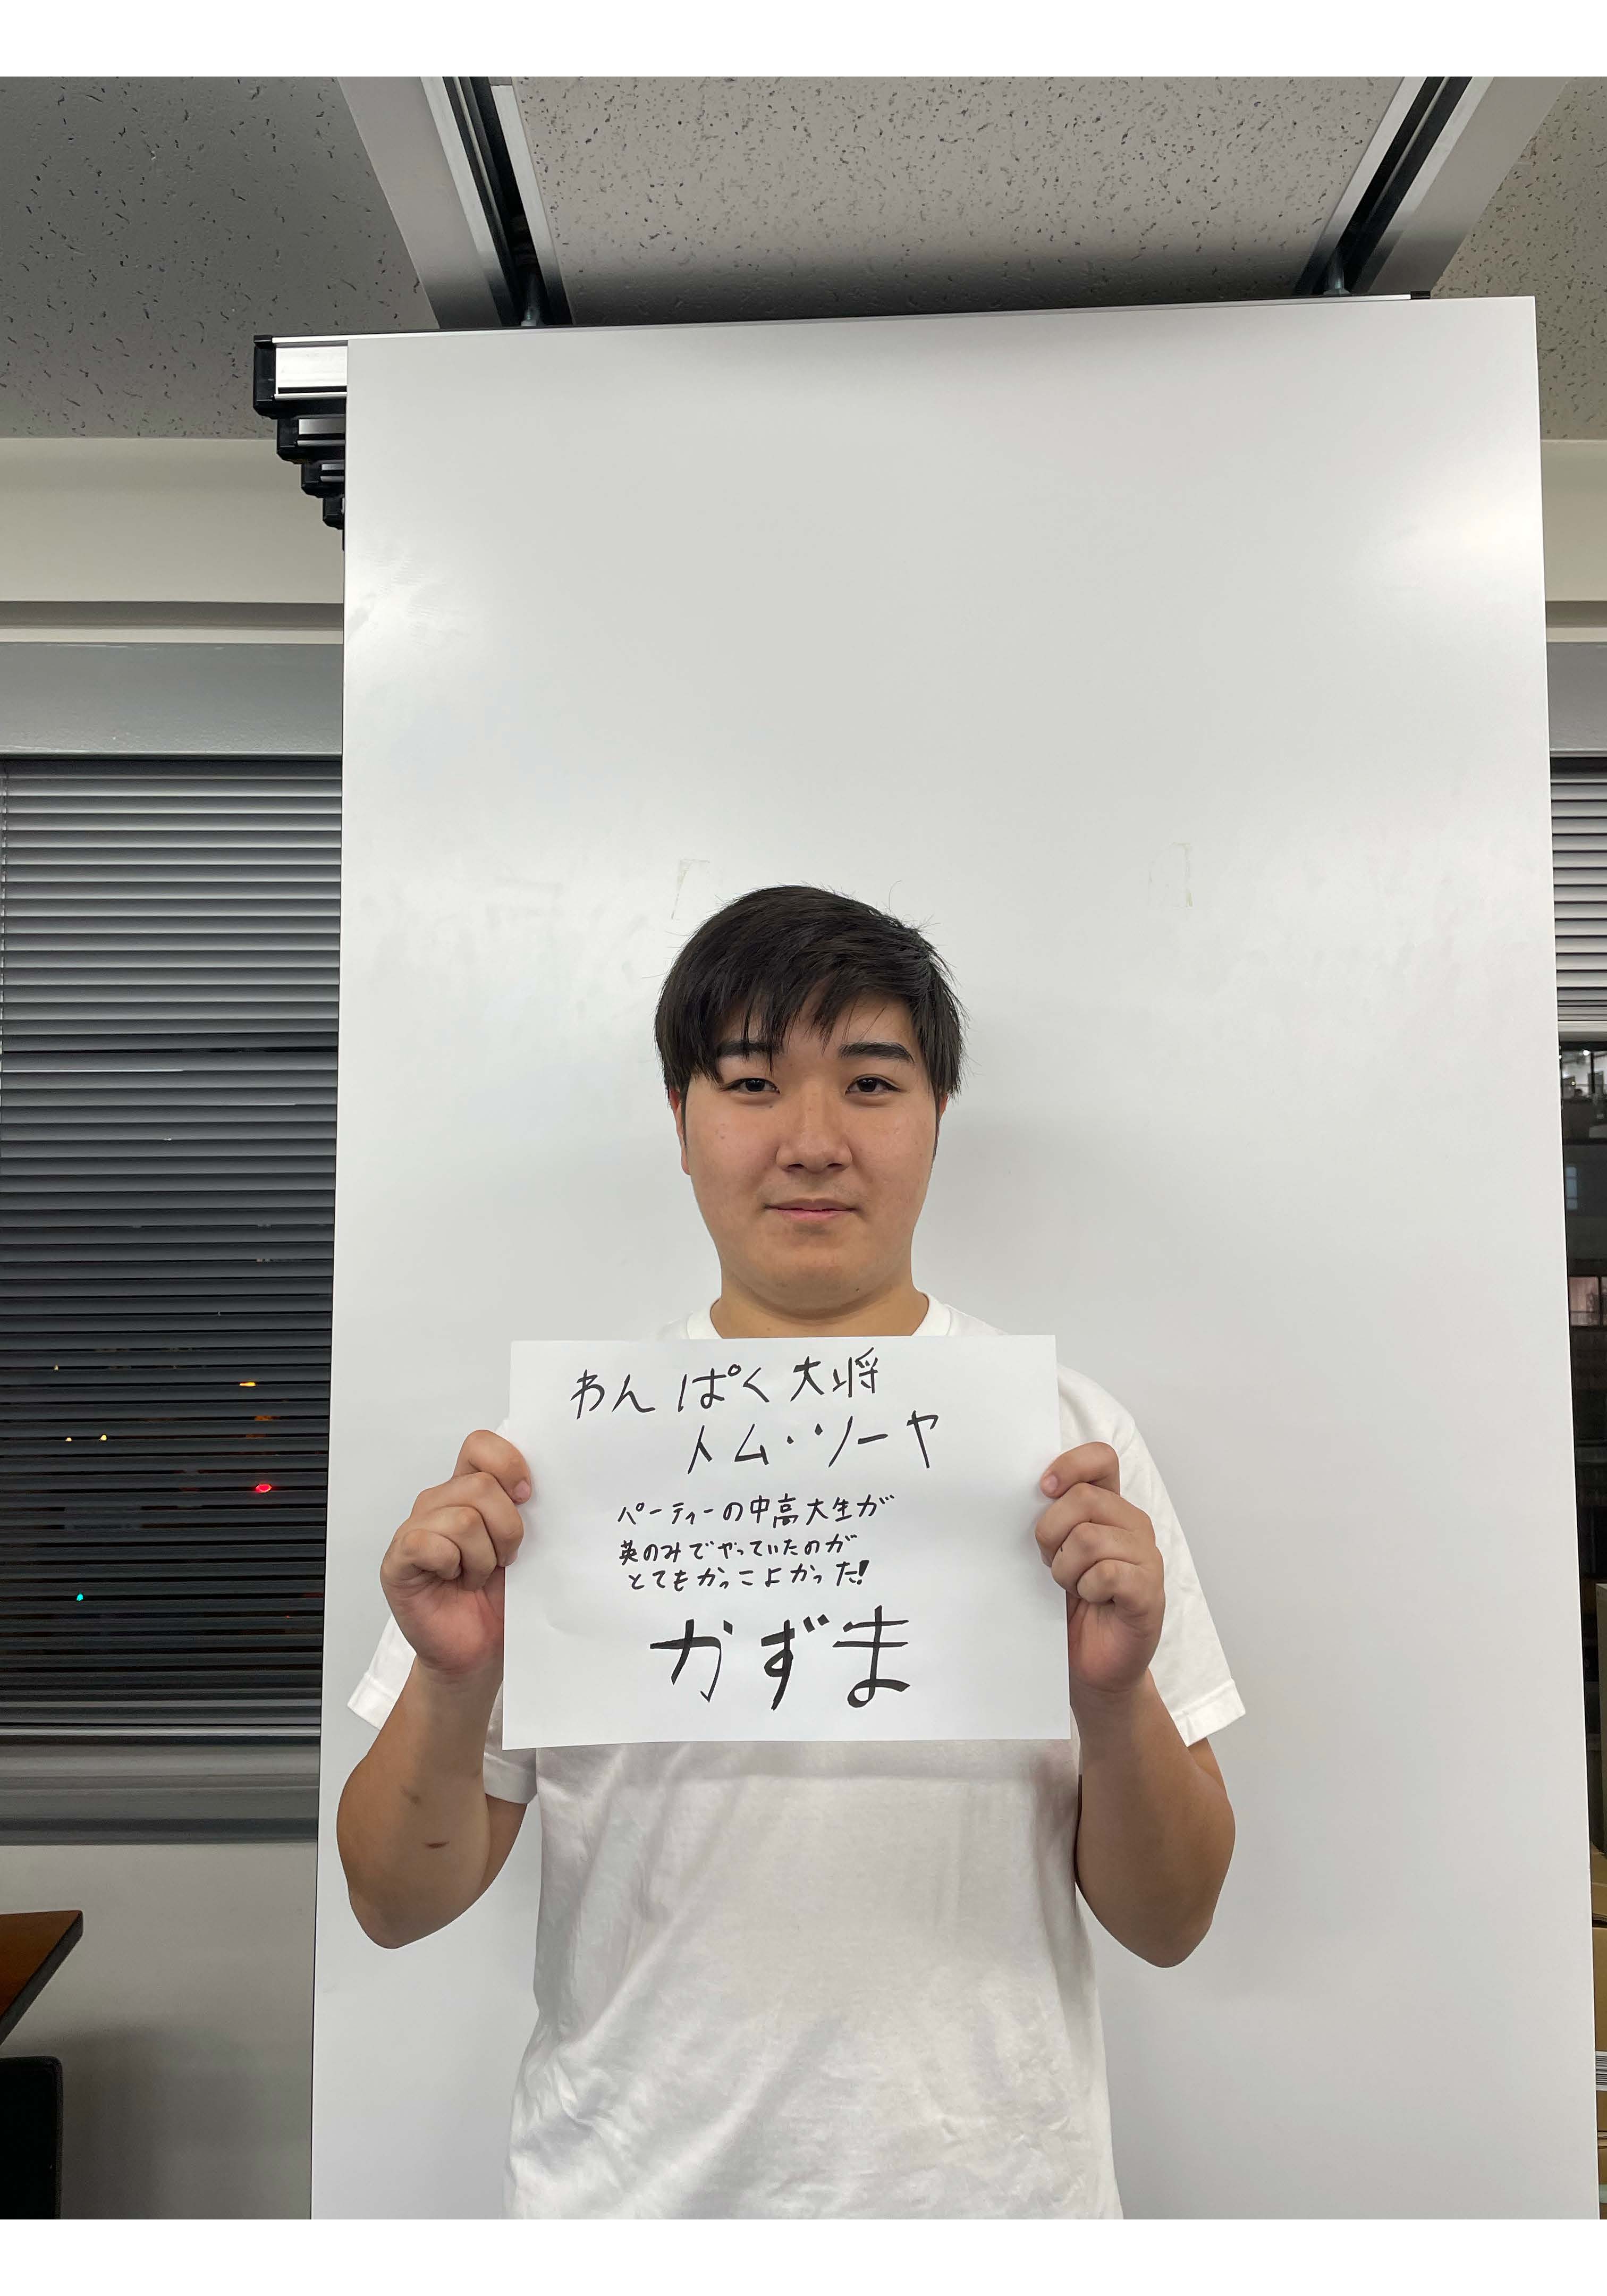 わんぱく大将
トム・ソーヤ
パーティーの中高大生が
英のみでやっていたのが
とてもかっこよかった!
かずま